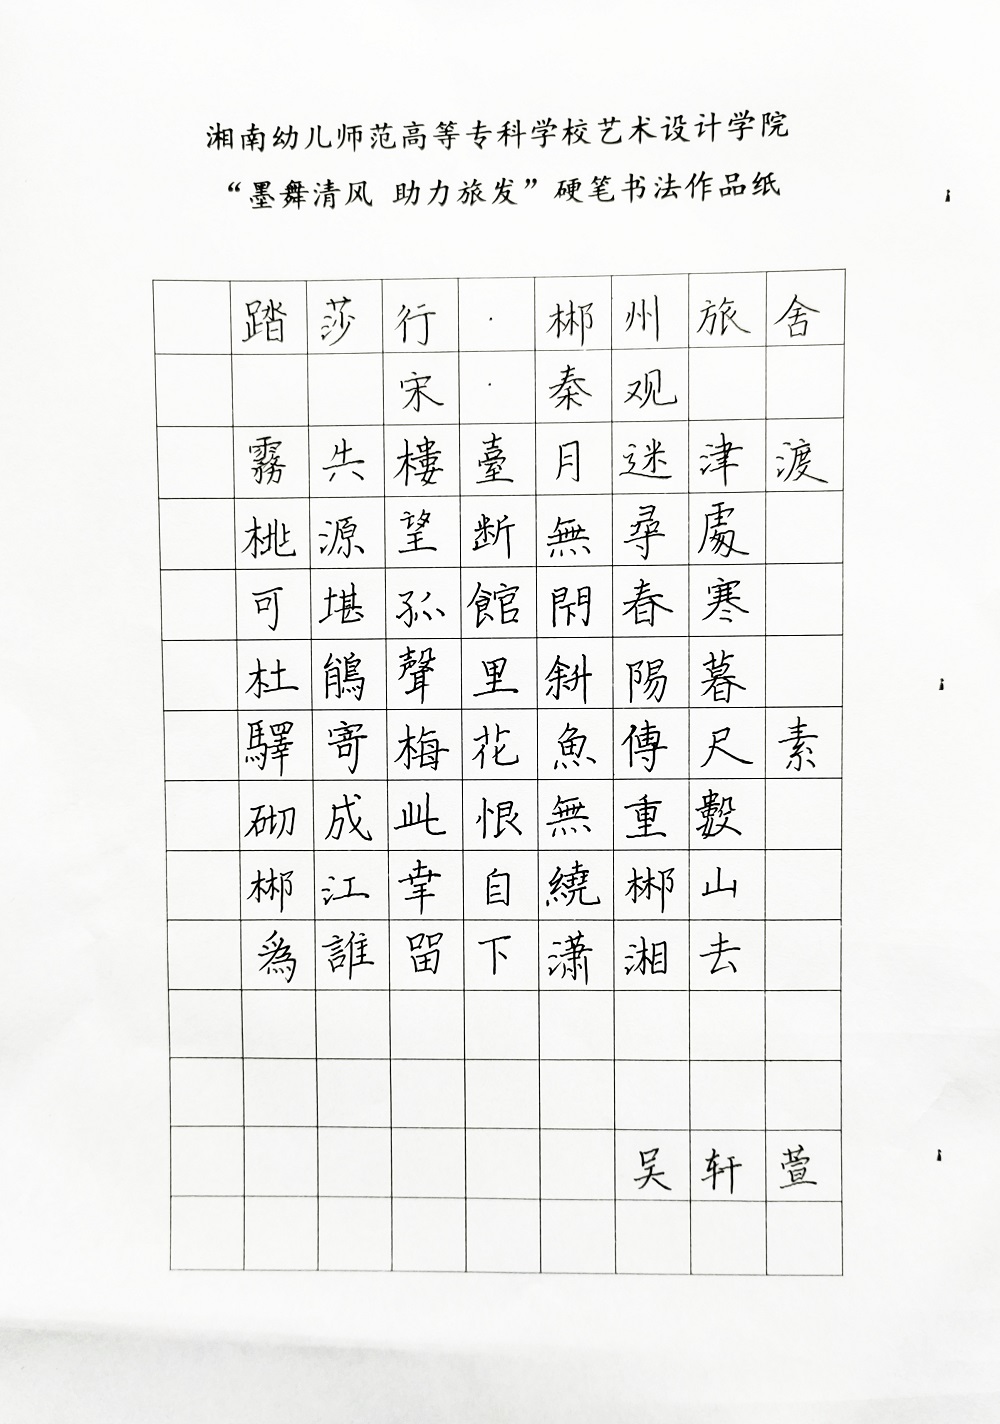 湘南幼儿师范高等专科学校艺术设计学院
“墨舞清风 助力旅发”硬笔书法作品纸
踏莎行·郴州旅舍
宋·秦观
霧失樓臺月迷津渡
桃源望断無尋處
可堪孤館閉春寒
杜鵑聲里斜陽暮
驛寄梅花魚傳尺素
砌成此恨無重數
郴江幸自繞郴山
為誰留下潇湘去
吴轩萱